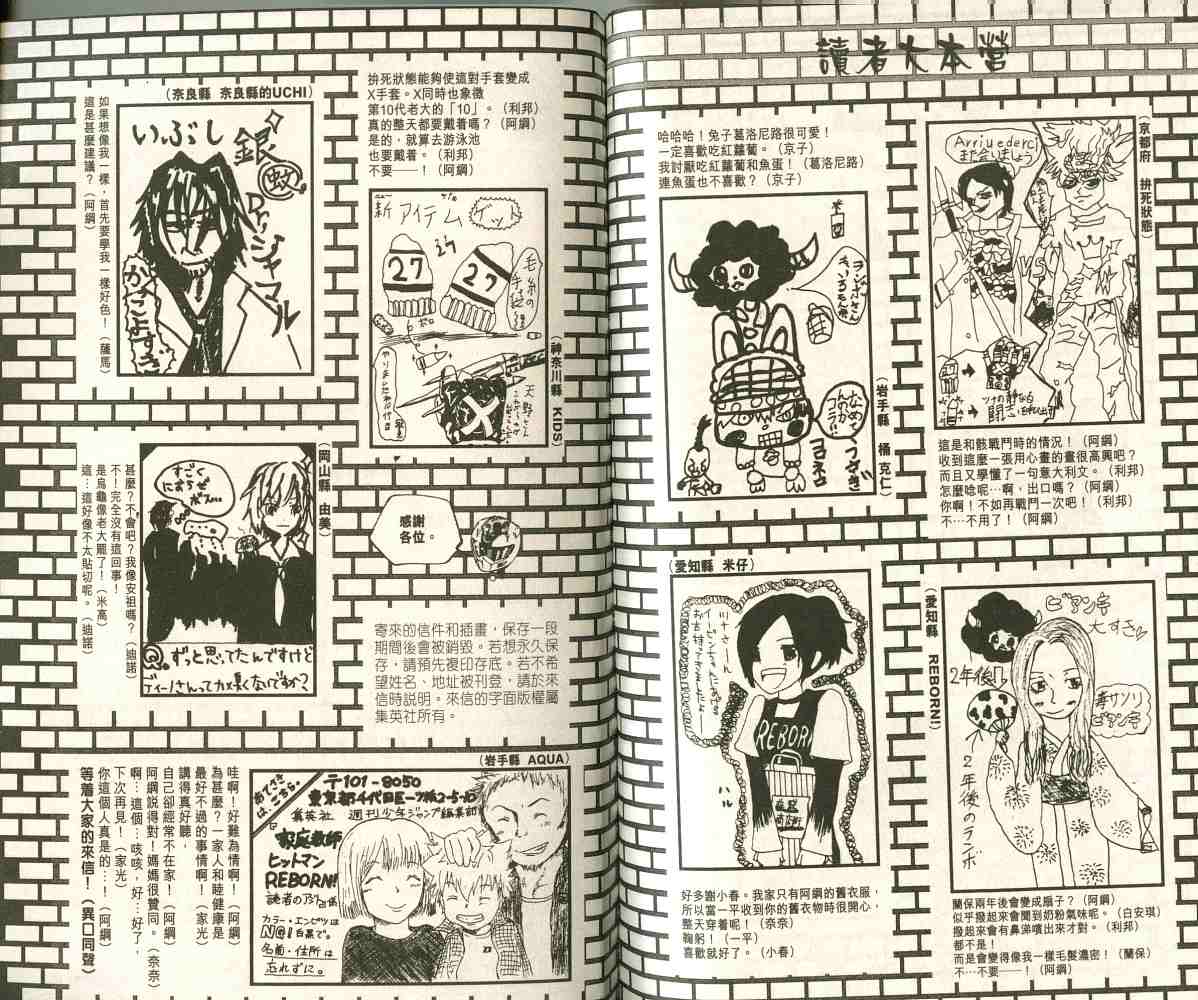 讀者大本營
(京都府 拚死狀態)
Arrivederci
また会いましょう
VS
這是和骸戰鬥時的情況！（阿綱）
收到這麼一張用心畫的畫很高興吧？
而且又學懂了一句意大利文。（利邦）
怎麼唸呢…啊，出口嗎？（阿綱）
你啊！不如再戰鬥一次吧！（利邦）
不…不用了！（阿綱）
哈哈哈！兔子葛洛尼路很可愛！
一定喜歡吃紅蘿蔔。（京子）
我討厭吃紅蘿蔔和魚蛋！（葛洛尼路）
連魚蛋也不喜歡？（京子）
(岩手縣 橘 克仁)
うさぎ
ヨヨネロ
(愛知縣 REBORN!)
ビアンキ
大すき
2年後
毒サソリ
ビアンキ
2年後のランボ
蘭保兩年後會變成扇子？（阿綱）
似乎撥起來會聞到奶粉氣味呢。（白安琪）
撥起來會有鼻涕噴出來才對。（利邦）
都不是！
而是會變得像我一樣毛髮濃密！（蘭保）
不…不要——！（阿綱）
(愛知縣 米仔)
REBORN
ハル
好多謝小春。我家只有阿綱的舊衣服，
所以當一平收到你的舊衣物時很開心，
整天穿着呢！（奈奈）
鞠躬！（一平）
喜歡就好了。（小春）
拚死狀態能夠使這對手套變成
X手套。X同時也象徵
第10代老大的「10」。（利邦）
真的整天都要戴着嗎？（阿綱）
是的，就算去游泳池
也要戴着。（利邦）
不要——！（阿綱）
新アイテム
ゲット
27
27
毛糸の手袋
X
(神奈川縣 KIDS)
(奈良縣 奈良縣的UCHI)
いぶし銀
Dr.シャマル
かっこよすぎ
如果想像我一樣，首先要學我一樣好色！（薩馬）
這是甚麼建議？（阿綱）
(岡山縣 由美)
すごく
におうぜ
ボス…
Q.ずっと思ってたんですけど
ディーノさんってカメ臭くないですか？
甚麼？不會吧？我像安祖嗎？（迪諾）
不！完全沒有這回事！
是烏龜像老大罷了！（米高）
這…這好像不太貼切呢。（迪諾）
感謝
各位。
寄來的信件和插畫，保存一段
期間後會被銷毀。若想永久保
存，請預先複印存底。若不希
望姓名、地址被刊登，請於來
信時說明。來信的字面版權屬
集英社所有。
(岩手縣 AQUA)
あてさきはこちら。
〒101-8050
東京都千代田区一ツ橋2-5-10
集英社 週刊少年ジャンプ編集部
家庭教師
ヒットマン
REBORN!
読者のアジト係
カラー・エンピツは
NG！白黒で。
名前・住所は
忘れずに。
哇啊！好難為情啊！（阿綱）
為甚麼？一家人和睦健康是
最好不過的事情啊！（家光）
講得真好聽，
自己卻經常不在家！（阿綱）
阿綱說得對！媽媽很贊同。（奈奈）
啊…這個…咳咳，好…好了，
下次再見！（家光）
你這個人真是的…！（阿綱）
等着大家的來信！（異口同聲）